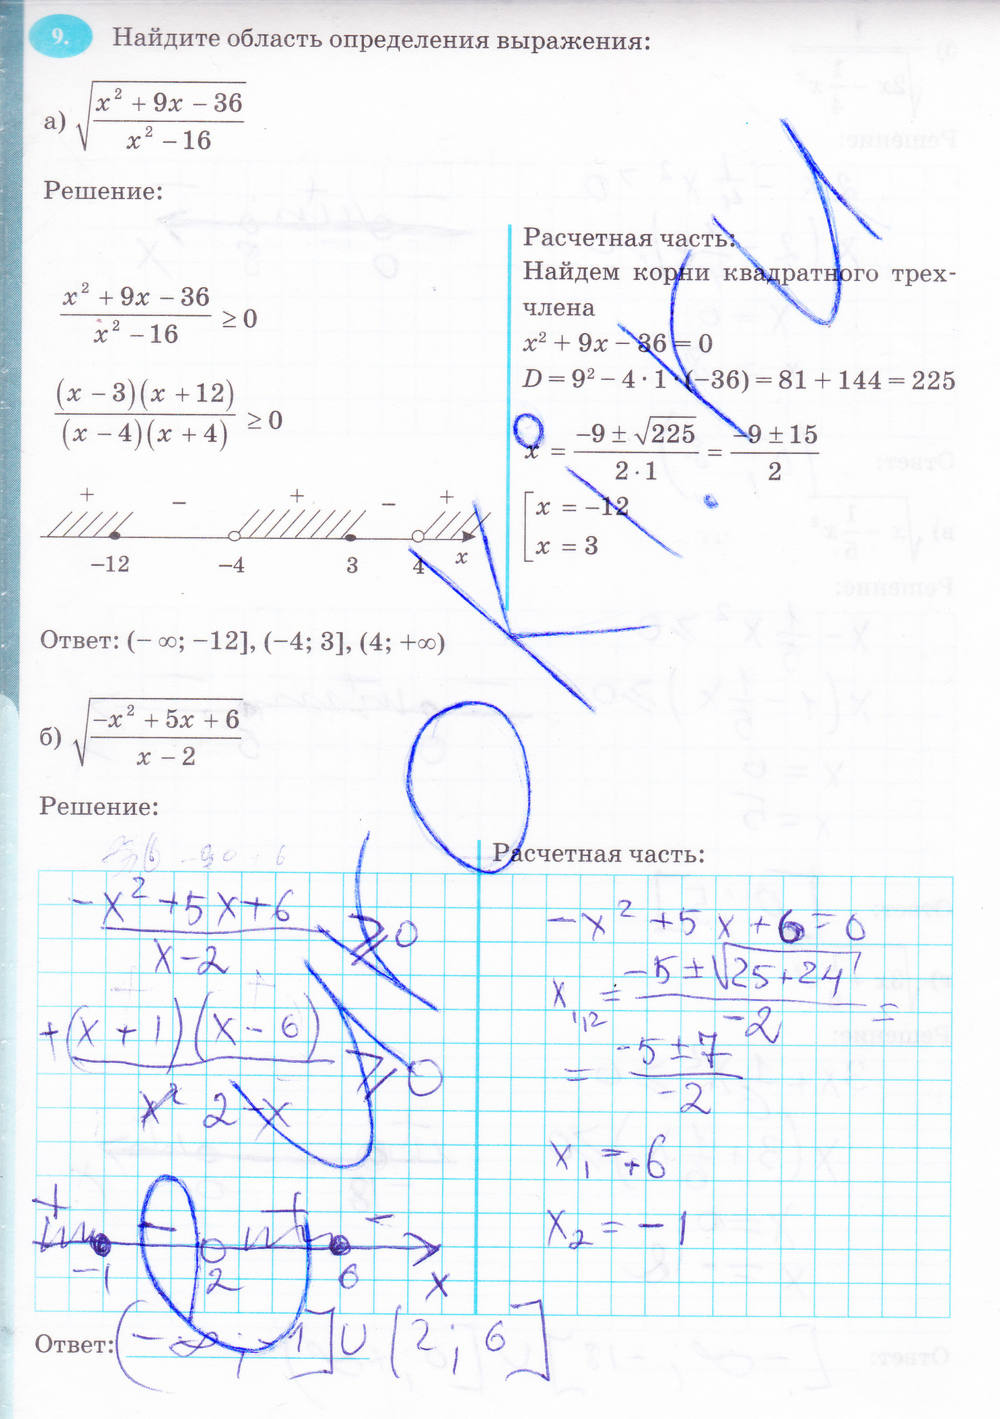 9. Найдите область определения выражения:
а) √((x² + 9x − 36)/(x² − 16))
Решение:
(x² + 9x − 36)/(x² − 16) ≥ 0
((x − 3)(x + 12))/((x − 4)(x + 4)) ≥ 0
+ − + − +
−12 −4 3 4 x
Расчетная часть:
Найдем корни квадратного трех-
члена
x² + 9x − 36 = 0
D = 9² − 4 · 1 · (−36) = 81 + 144 = 225
x = (−9 ± √225)/(2 · 1) = (−9 ± 15)/2
[x = −12
x = 3
Ответ: (− ∞; −12], (−4; 3], (4; +∞)
б) √((−x² + 5x + 6)/(x − 2))
Решение:
(−x² + 5x + 6)/(x − 2) ≥ 0
+(x + 1)(x − 6)/(2 − x) ≥ 0
+ − + −
−1 2 6 x
Расчетная часть:
−x² + 5x + 6 = 0
x₁,₂ = (−5 ± √(25 + 24))/(−2) =
= (−5 ± 7)/(−2)
x₁ = +6
x₂ = −1
Ответ: (−∞; −1] ∪ (2; 6]